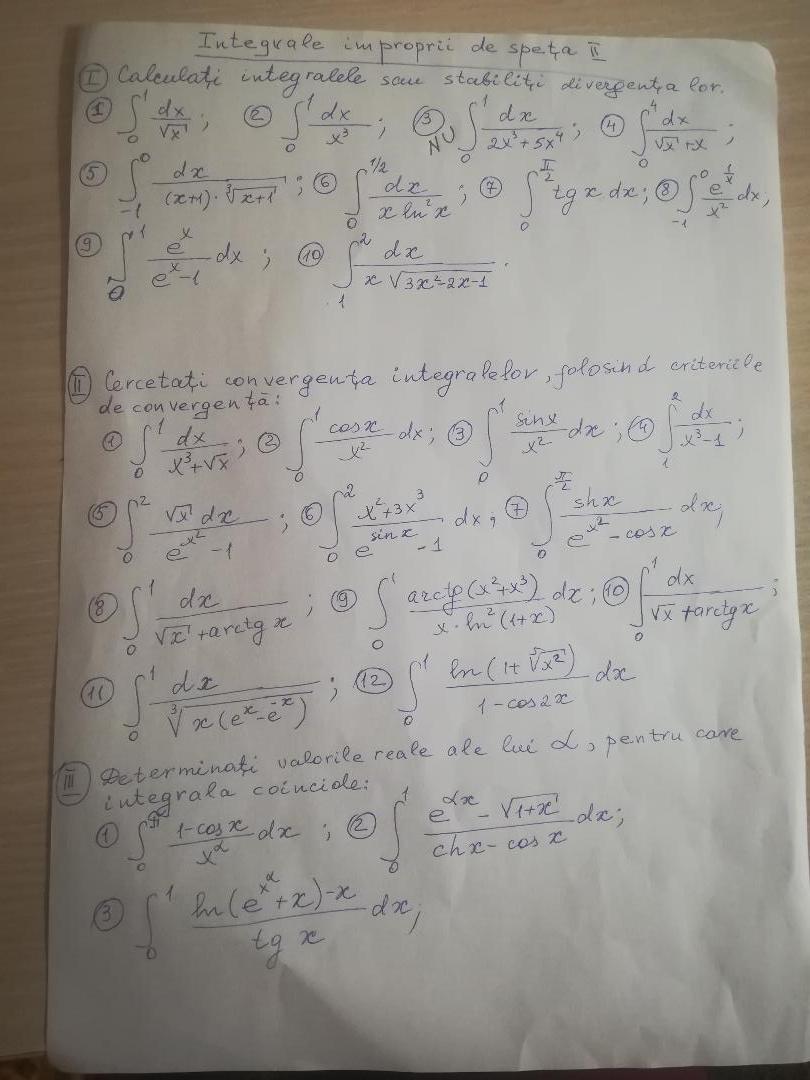 Integrale improprii de speța II
I Calculați integralele sau stabiliți divergența lor.
① ∫₀¹ dx/√x ; ② ∫₀¹ dx/x³ ; ③ NU ∫₀¹ dx/(2x³+5x⁴) ; ④ ∫₀⁴ dx/(√x+x) ;
⑤ ∫₋₁⁰ dx/((x+1)·∛(x+1)) ; ⑥ ∫₀^(1/2) dx/(x ln²x) ; ⑦ ∫₀^(π/2) tg x dx ; ⑧ ∫₋₁⁰ e^(1/x)/x² dx,
⑨ ∫₀¹ eˣ/(eˣ-1) dx ; ⑩ ∫₁² dx/(x√(3x²-2x-1)) .
II Cercetați convergența integralelor, folosind criteriile
de convergență:
① ∫₀¹ dx/(x³+√x) ; ② ∫₀¹ cosx/x² dx ; ③ ∫₀¹ sinx/x² dx ; ④ ∫₁² dx/(x³-1) ;
⑤ ∫₀² √x dx/(e^(x²)-1) ; ⑥ ∫₀² (x²+3x³)/(e^(sin x)-1) dx ; ⑦ ∫₀^(π/2) shx/(e^(x²)-cosx) dx,
⑧ ∫₀¹ dx/(√x+arctg x) ; ⑨ ∫₀¹ arctg(x²+x³)/(x·ln²(1+x)) dx ; ⑩ ∫₀¹ dx/(√x+arctgx) ;
⑪ ∫₀¹ dx/∛(x(eˣ-e⁻ˣ)) ; ⑫ ∫₀¹ ln(1+⁵√(x²))/(1-cos2x) dx
III Determinați valorile reale ale lui α, pentru care
integrala coincide:
① ∫₀^π (1-cosx)/x^α dx ; ② ∫₀¹ (e^(αx)-√(1+x))/(chx-cosx) dx ;
③ ∫₀¹ (ln(e^(x^α)+x)-x)/(tg x) dx ;